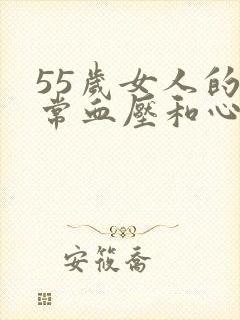 55歲女人的
常血壓和心
安筱喬